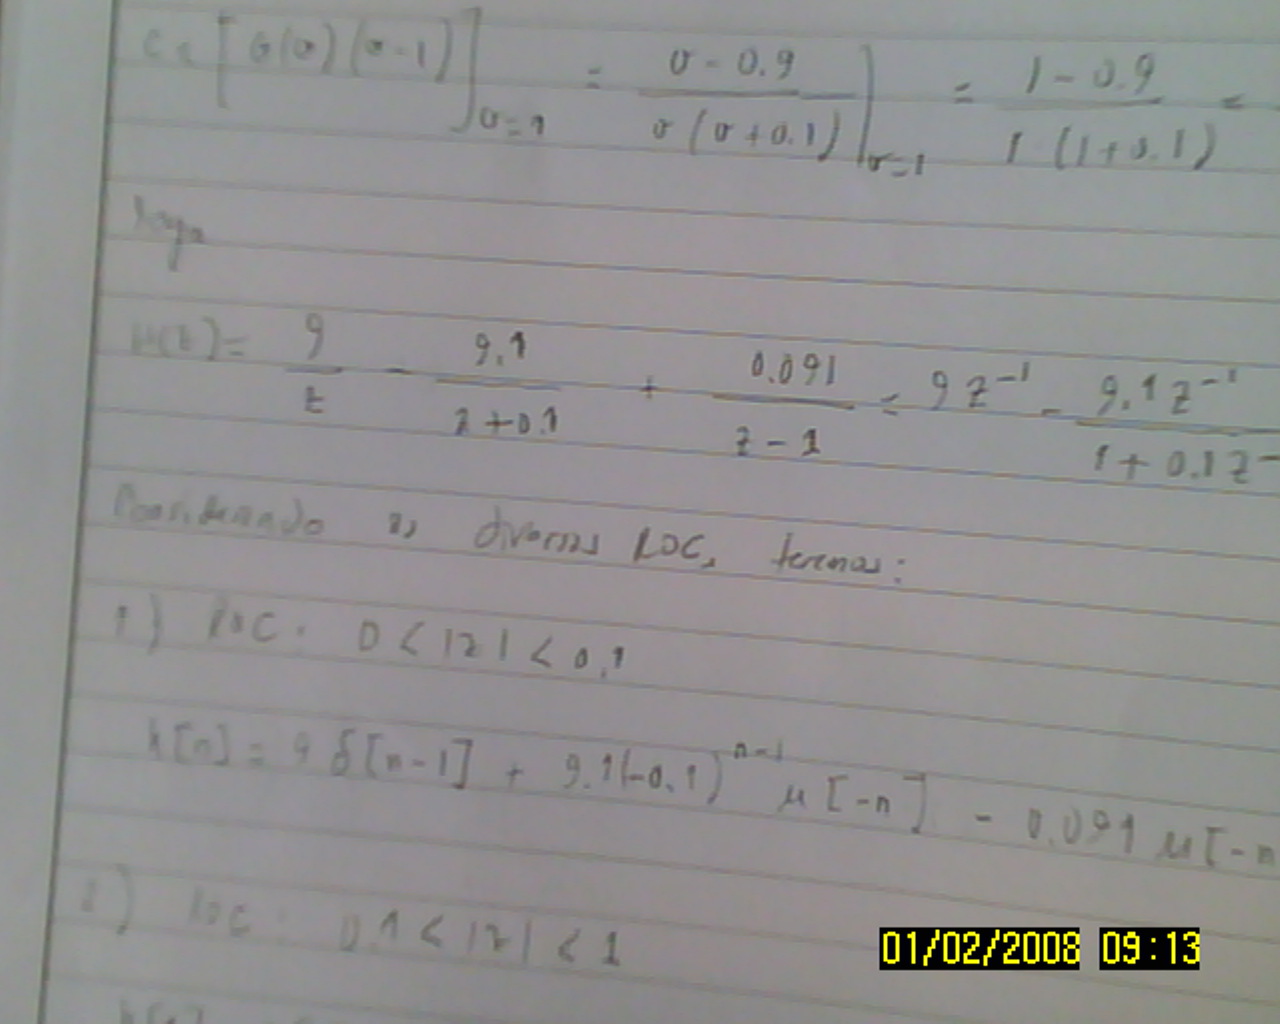 C = [G(v)(v-1)]v=1 = v - 0.9 / v(v+0.1) |v=1 = 1 - 0.9 / 1(1+0.1) =
Logo
H(z) = 9/z - 9.1/z+0.1 + 0.091/z-1 = 9z^-1 - 9.1z^-1/1+0.1z^-
Considerando as diversas ROC, teremos:
1) ROC: 0 < |z| < 0,1
h[n] = 9δ[n-1] + 9.1(-0.1)^n-1 μ[-n] - 0.091 μ[-n
2) ROC: 0.1 < |z| < 1
01/02/2008 09:13